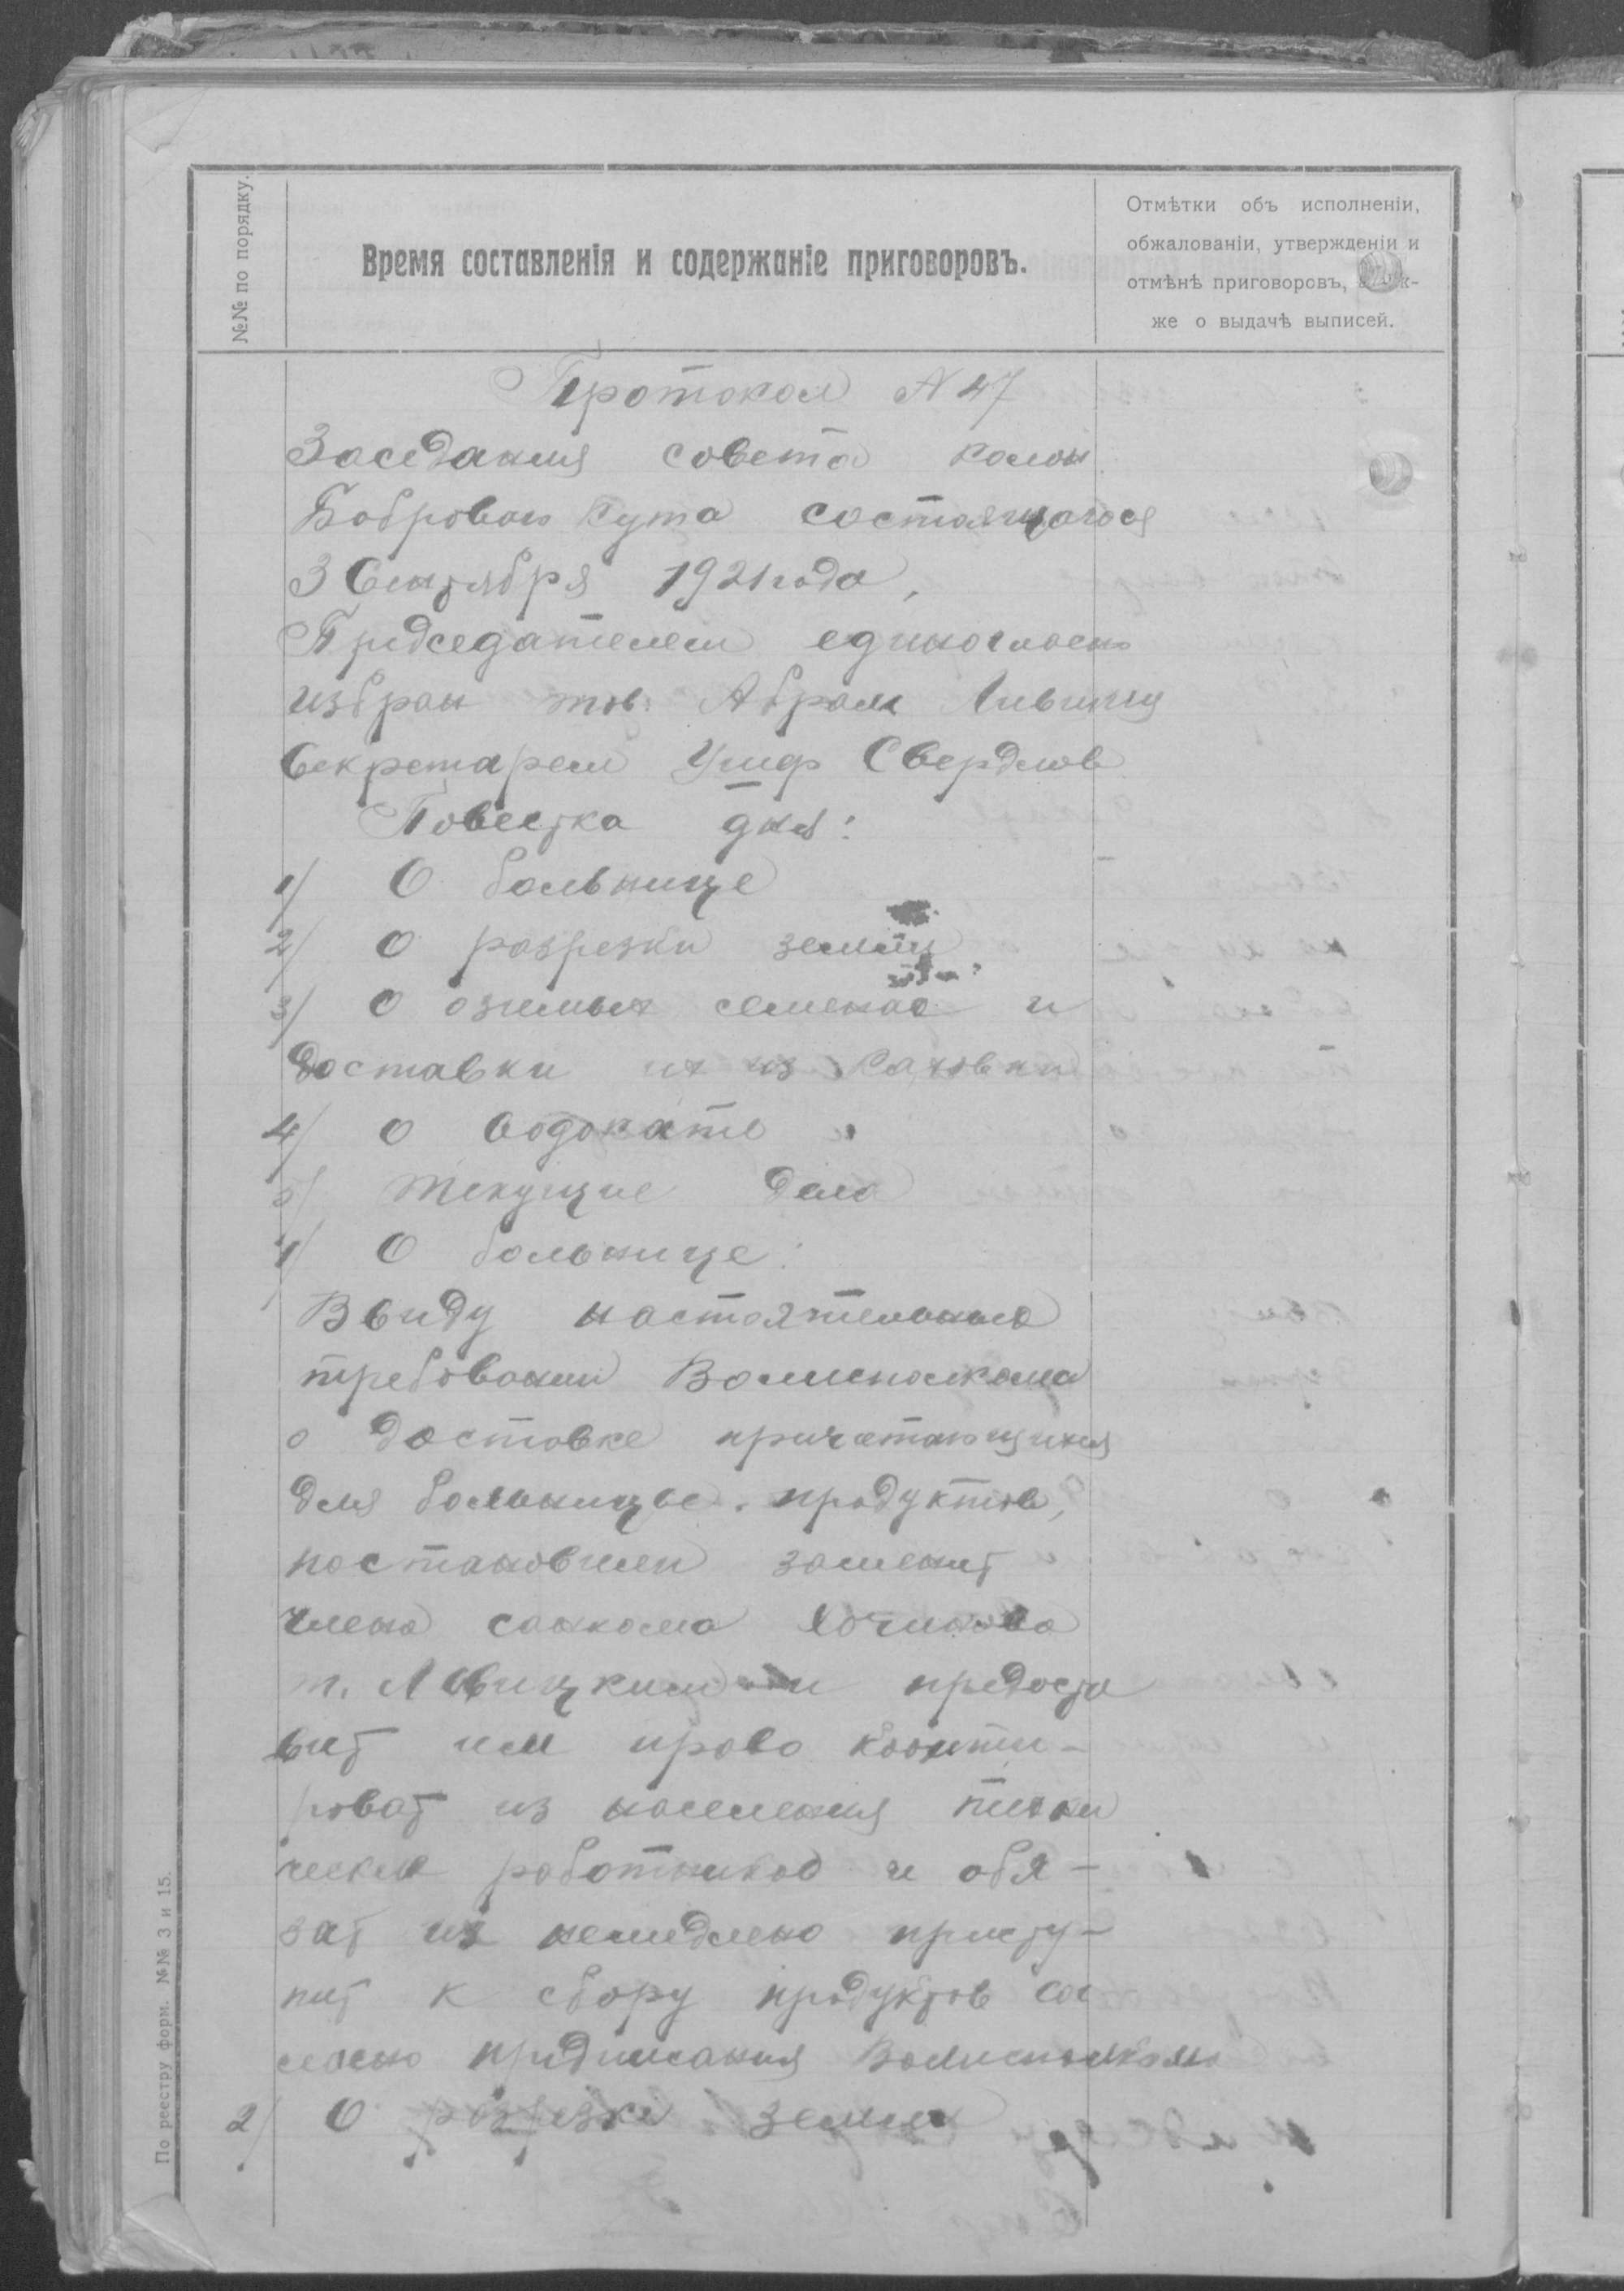 №№ по порядку.
Время составленія и содержаніе приговоровъ.
Отмѣтки объ исполненіи,
обжалованіи, утвержденіи и
отмѣнѣ приговоровъ, а так-
же о выдачѣ выписей.
Протокол N 47
Заседания совета колон.
Бобровый Кута состоящагося
3 Сентября 1921 года,
Председателем единогласно
избран тов. Абрам Ливниц
Секретарем Свердлов
Повестка дня:
1/ О больнице
2/ О разрезки земли
3/ О озимых семенах и
доставки их из Каховки
4/ О водокате
5/ Текущие дела
1/ О больнице:
Ввиду настоятельных
требовании Волисполкома
о доставке причитающихся
для больнице продуктов,
постановили заменит
члена санкома
т. Левицким и предоста
вит им право коопти-
роват из населения техни
ческих работников и обя-
зат их немедлено присту-
пит к сбору продуктов сог
ласно предписания Волисполкома
2/ О разрезки земли
По реестру форм. №№ 3 и 15.